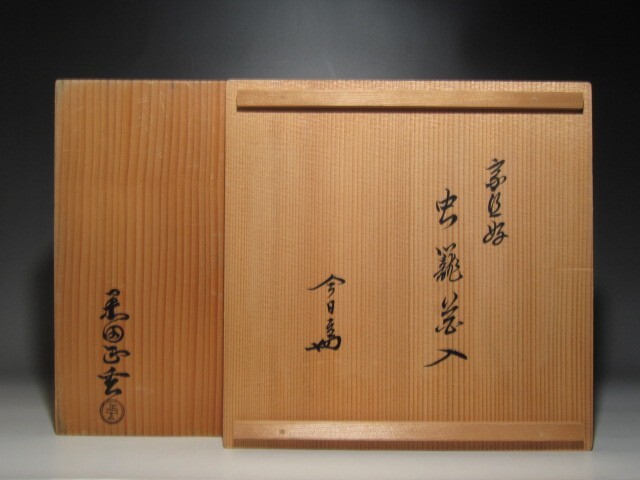 宗旦好
虫籠花入
今日庵
黒田正玄